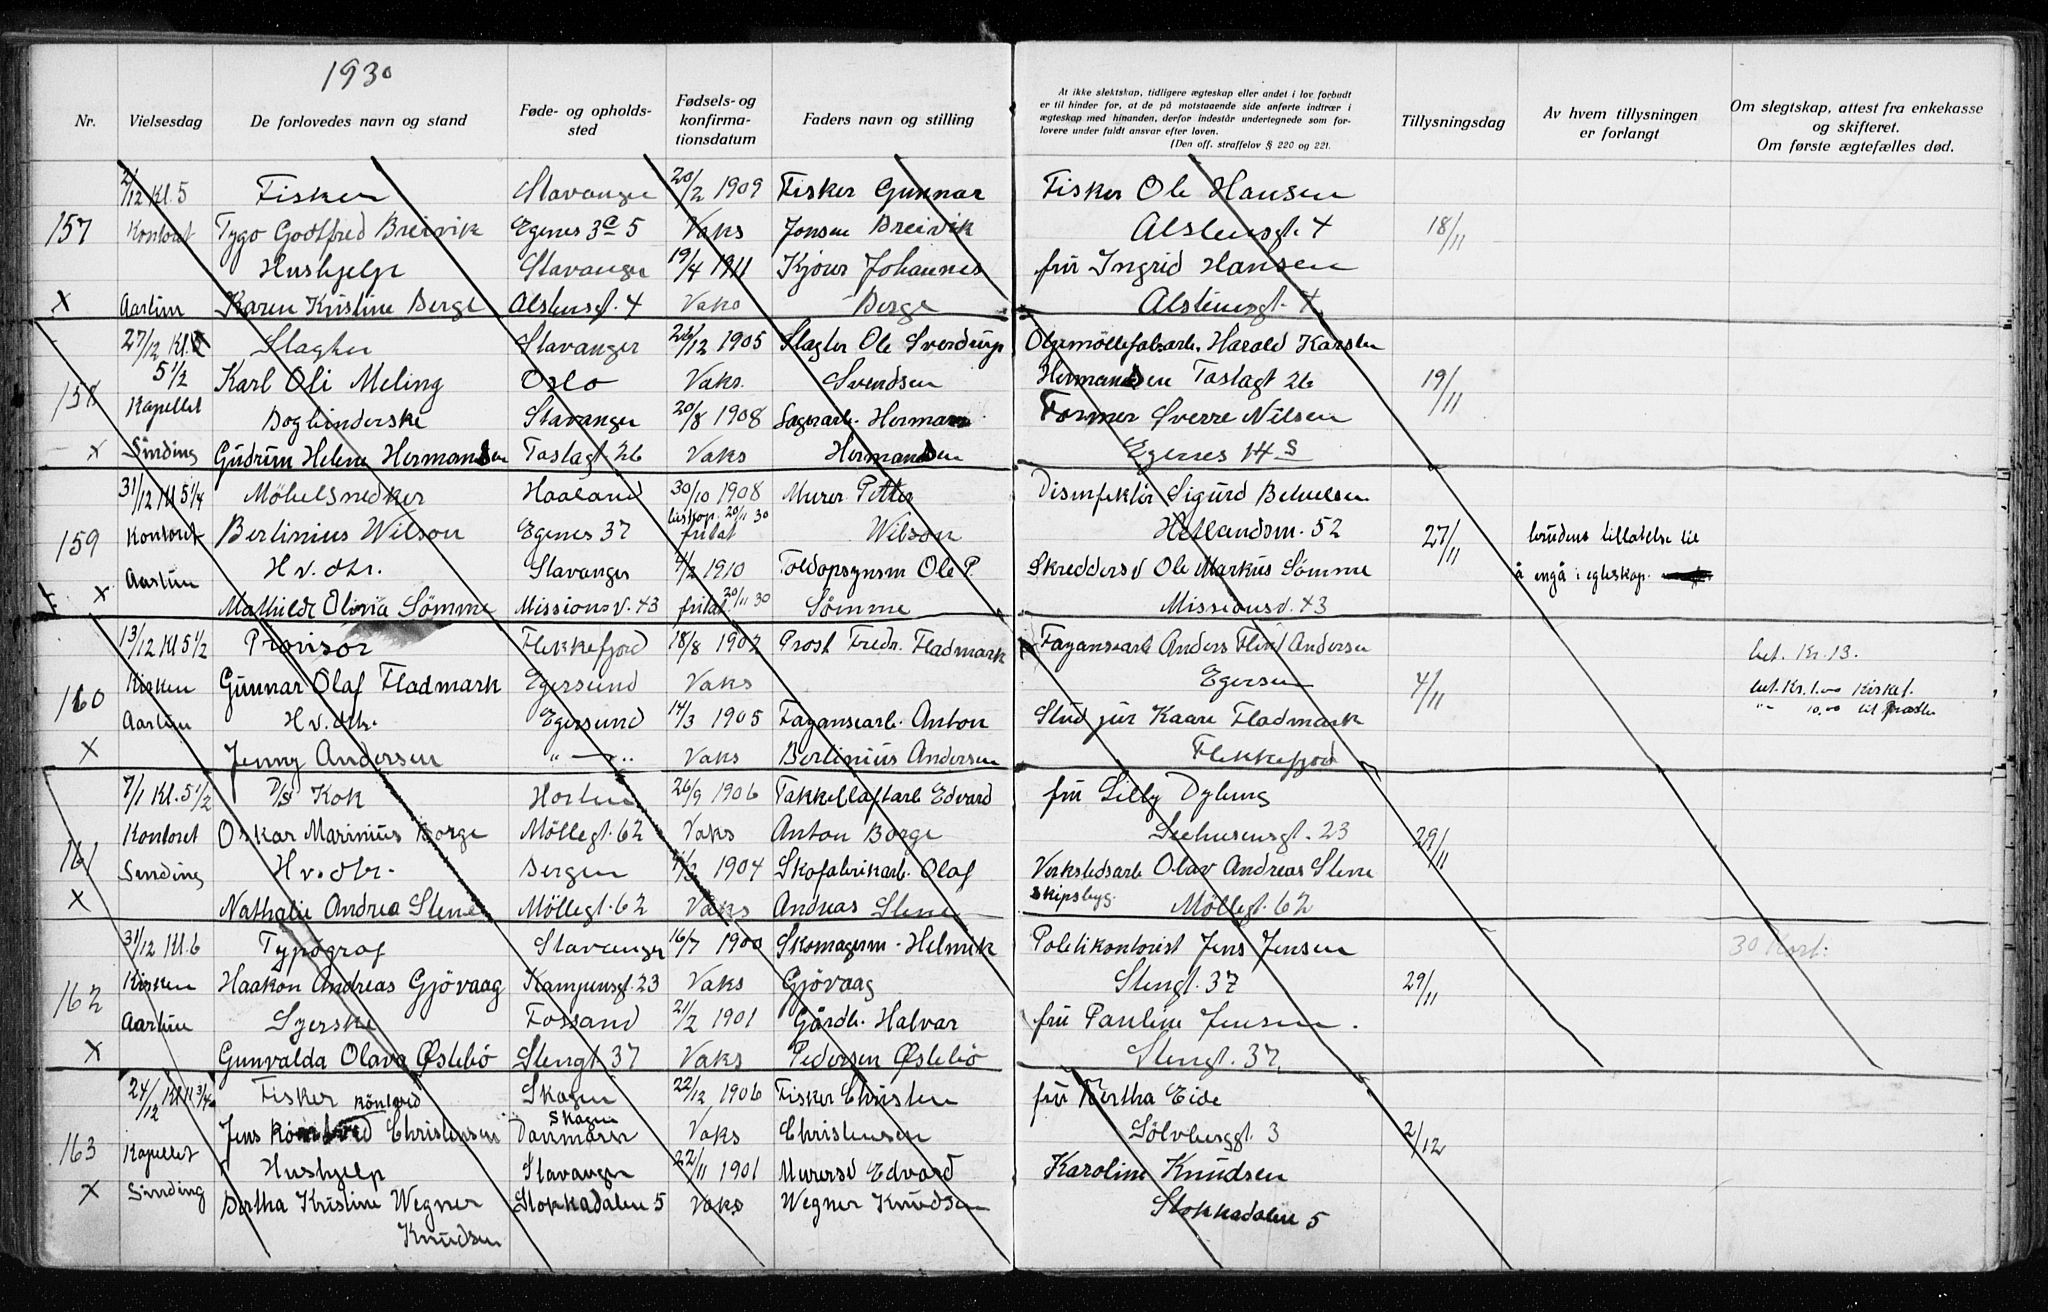 1930
Nr.
Vielsesdag
De forlovedes navn og stand
Føde- og opholds-
sted
Fødsels- og
konfirma-
tionsdatum
Faders navn og stilling
At ikke slektskap, tidligere ægteskap eller andet i lov forbudt
er til hinder for, at de på motstaaende side anførte indtrær i
ægteskap med hinanden, derfor indestår undertegnede som for-
lovere under faldt ansvar efter loven.
(Den off. straffelov § 220 og 221.
Tillysningsdag
Av hvem tillysningen
er forlangt
Om slegtskap, attest fra enkekasse
og skifteret.
Om første ægtefælles død.
2/12 Kl. 5 Fisker Stavanger 20/2 1909 Fisker Gunnar Fisker Ole Hansen
157 Kontoret Tygo Godtfred Breivik Egenes 3c 5 Vaks Jonsen Breivik Alstensgt. 4 18/11
Hushjelp Stavanger 19/4 1911 Kjører Johannes fru Ingrid Hansen
x Aastun Karen Kristine Berge Alstensgt. 4 Vaks Berge Alstensgt. 4
27/12 Kl. Slagter Stavanger 26/12 1905 Slagter Ole Sverdrup Harald Karsten
5 1/2 Karl Oli Meling Oslo Vaks. Svendsen Hermandsen Taslagt 26 19/11
158 Kapellet Bogbinderske Stavanger 20/8 1908 Sagarb. Herman Former Sverre Nilsen
x Sinding Gudrun Helene Hermandsen Taslagt 26 Vaks Hermandsen Egenes 14 S
31/12 Kl 5 1/4 Möbelsnedker Haaland 30/10 1908 Murer Petter Disinfektör Sigurd Betuelsen
159 Kontoret Berlinius Wilson Egenes 37 biskop. 20/11 30 fritat Wilson Hetlandsm. 52 27/11 brudens tillatelse til
Aastun H v. dtr. Stavanger 1/2 1910 Toldopsynsm Ole P. Skreddersv Ole Markus Sømme å ingå i egteskap.
x Mathilde Olivia Sömme Missionsv. 43 fritat 20/11 30 Sömme Missionsv. 43
13/12 Kl 5 1/2 Provisor Flekkefjord 18/8 1902 Prost Fredr. Fladmark Fayansearb Anders Andersen bet. Kr. 13.
160 Kirken Gunnar Olaf Fladmark Egersund Vaks Egersun 4/11 bet. Kr. 1.00 Kirket.
Aastun H v. dtr. Egersund 14/3 1905 Fayansearb. Anton Stud jur Kaare Fladmark "- 10.00 til
x Jenny Andersen "—" Vaks Berlinius Andersen Flekkefjord
7/1 Kl. 5 1/2 D/S Kok Horten 26/9 1906 Takkelloftarb Edvard fru Lilly Dylung
161 Kontoret Oskar Marinius Borge Möllegt. 62 Vaks Anton Borge Seehusensgt. 23 29/11
Sinding H v. dtr. Bergen 1904 Skofabrikarb. Olaf Verkstedsarb Olav Andreas Stene
x Nathalie Andrea Stene Möllegt. 62 Vaks Andreas Stene skipsbyg. Möllegt. 62
31/12 Kl. 6 Typograf Stavanger 16/7 1900 Skomagerm. Helmik Politikontorist Jens Jensen 30 Kort.
162 Kirken Haakon Andreas Gjövaag Kampensgt. 23 Vaks Gjövaag Stengt. 37 29/11
Aastun Syerske Fossand 21/2 1901 Gårdb. Halvar fru Pauline Jensen.
x Gunvalda Olava Østebö Stengt. 37 Vaks Pedersen Østebö Stengt. 37.
24/12 Kl 11 3/4 Fisker könlrod Skagen 22/12 1906 Fisker Christen fru Bertha Eide
163 Jens Christensen Skagen Danmark Vaks Christensen Sölvberggt. 3 2/12
Kapellet Hushjelp Stavanger 22/11 1901 Murersv Edvard Karoline Knudsen
x Sinding Bertha Kristine Wegner Stokkadalen 5 Vaks Wegner Knudsen Stokkadalen 5
Knudsen